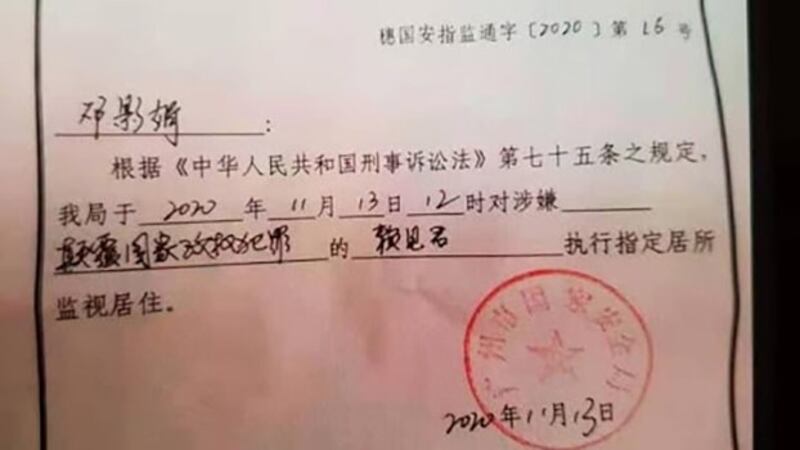 穗国安指监通字〔2020〕第 16 号
邓影：
根据《中华人民共和国刑事诉讼法》第七十五条之规定，
我局于 2020 年 11 月 13 日 12 时对涉嫌
颠覆国家政权犯罪 的 赖见君 执行指定居所
监视居住。
广州市国家安全局
2020年11月13日